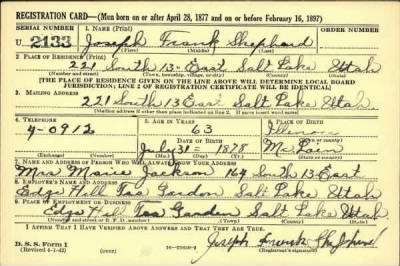 REGISTRATION CARD—(Men born on or after April 28, 1877 and on or before February 16, 1897)
SERIAL NUMBER 1. NAME (Print) ORDER NUMBER
U 2133 Joseph Frank Shepherd
(First) (Middle) (Last)
2. PLACE OF RESIDENCE (Print)
221 South 13-East Salt Lake Utah
(Number and street) (Town, township, village, or city) (County) (State)
[THE PLACE OF RESIDENCE GIVEN ON THE LINE ABOVE WILL DETERMINE LOCAL BOARD
JURISDICTION; LINE 2 OF REGISTRATION CERTIFICATE WILL BE IDENTICAL]
3. MAILING ADDRESS
221 South 13 East Salt Lake Utah.
(Mailing address if other than place indicated on line 2. If same insert word same)
4. TELEPHONE 5. AGE IN YEARS 6. PLACE OF BIRTH
4-0912 63 Illinois
DATE OF BIRTH (Town or county)
July 31 1878
(Exchange) (Number) (Mo.) (Day) (Yr.) (State or country)
7. NAME AND ADDRESS OF PERSON WHO WILL ALWAYS KNOW YOUR ADDRESS
Mrs Marie Jackson 164 South 13 East
8. EMPLOYER'S NAME AND ADDRESS
Edge Hill Tea Garden Salt Lake Utah
9. PLACE OF EMPLOYMENT OR BUSINESS
Edge Hill Tea Garden Salt Lake Utah.
(Number and street or R. F. D. number) (Town) (County) (State)
I AFFIRM THAT I HAVE VERIFIED ABOVE ANSWERS AND THAT THEY ARE TRUE.
D. S. S. Form 1
(Revised 4-1-42) (over)
Joseph Frank Shepherd
(Registrant's signature)